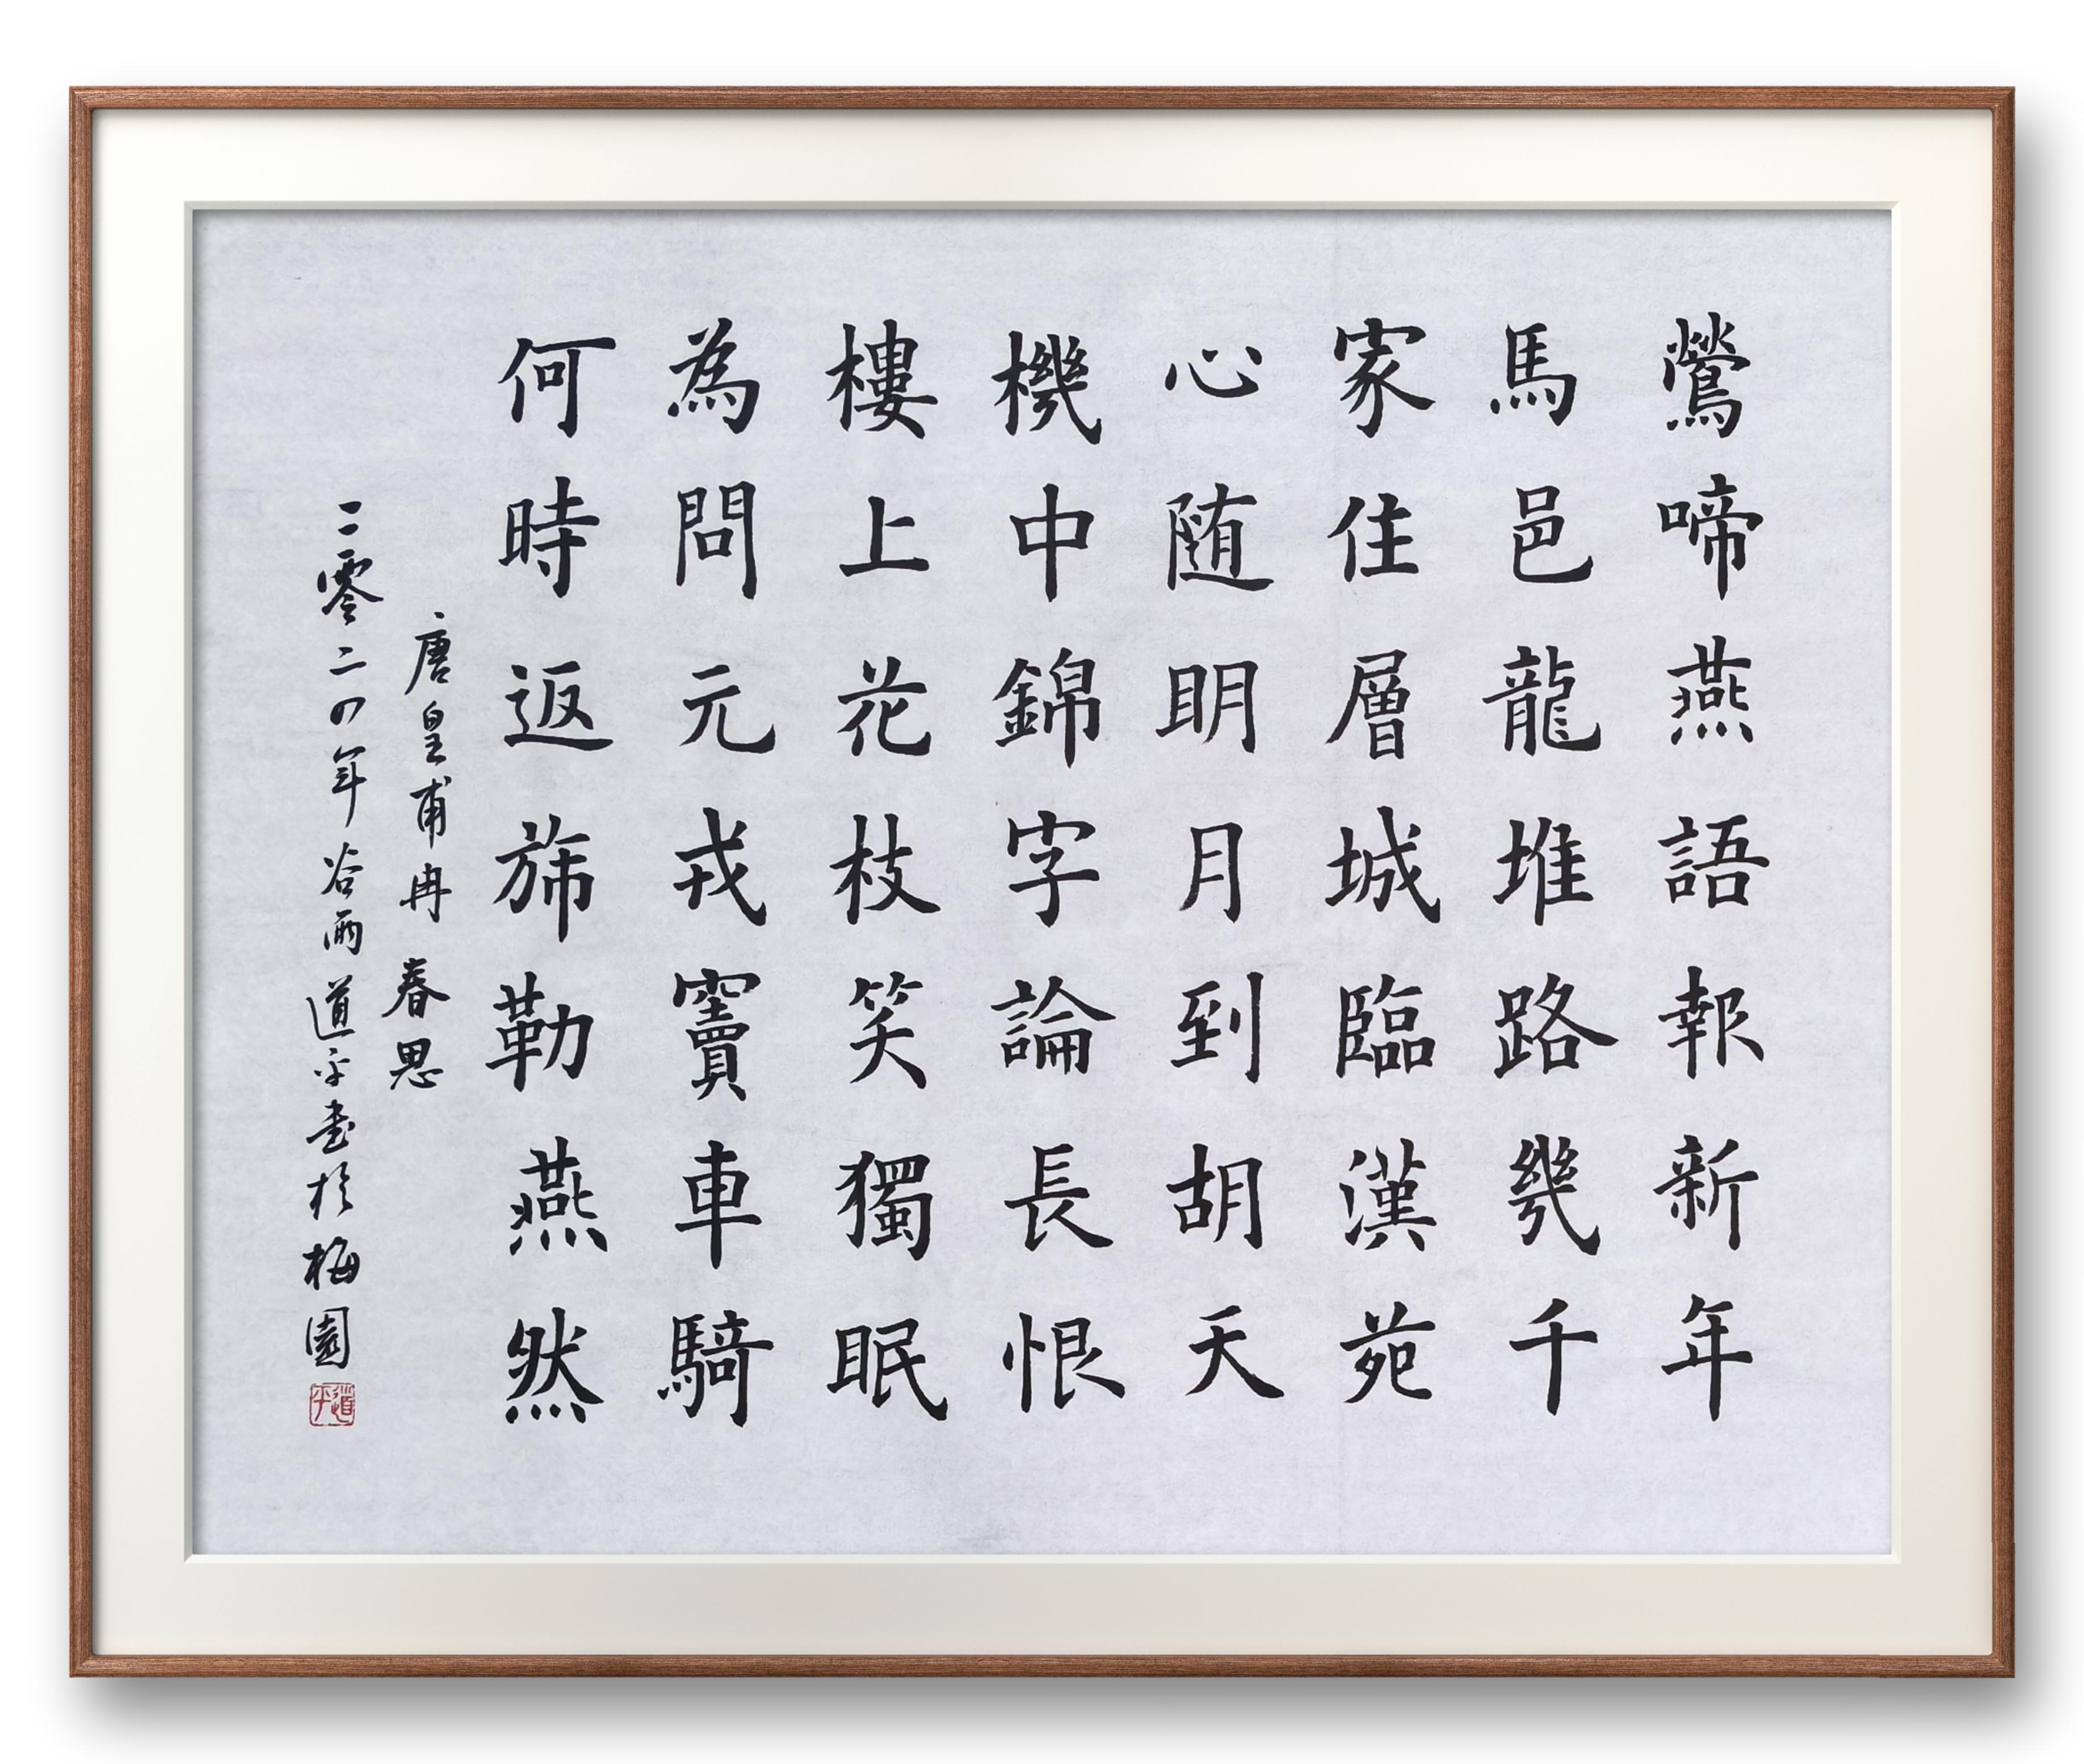 鶯啼燕語報新年
馬邑龍堆路幾千
家住層城臨漢苑
心随明月到胡天
機中錦字論長恨
樓上花枝笑獨眠
為問元戎竇車騎
何時返斾勒燕然
唐皇甫冉 春思
二零二四年谷雨道平书於梅園
道平